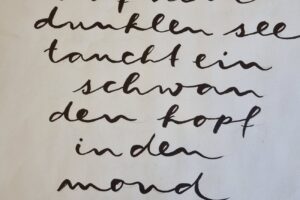 dunklen see
taucht ein
schwan
den kopf
in den
mond